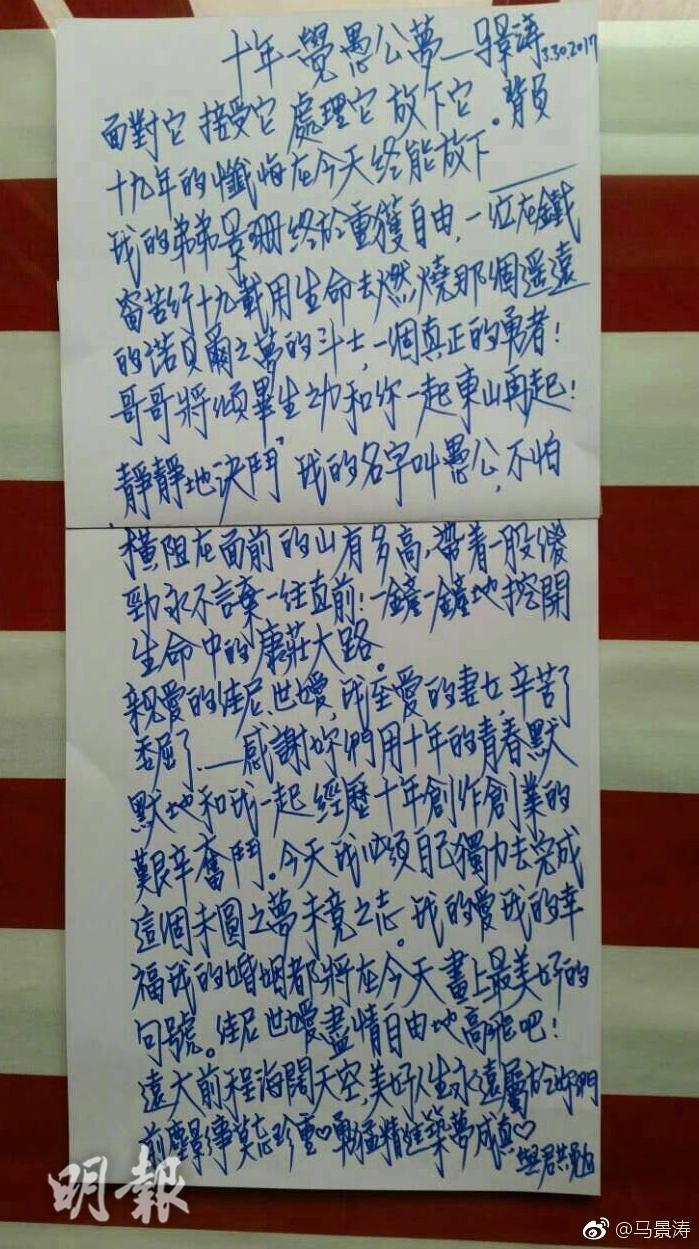 十年一覺愚公夢—马景涛 3.30.2017
面對它 接受它 處理它 放下它。背負
十九年的懺悔在今天终能放下——
我的弟弟景珊终於重獲自由,一位在鐵
窗苦行十九載用生命去燃燒那個遥遠
的诺贝爾之夢的斗士,一個真正的勇者!
哥哥將傾畢生之力和你一起東山再起!
靜靜地決鬥"我的名字叫愚公,不怕
橫阻在面前的山有多高,帶着一股傻
勁永不言棄一往直前!一鏟一鏟地挖開
生命中的康莊大路。
親愛的佳尼、世嬡,我至愛的妻女,辛苦了
委屈了.——感謝妳們用十年的青春默
默地和我一起經歷十年創作創業的
艱辛奮鬥.今天我必須自己獨力去完成
這個未圓之夢未竟之志。我的愛我的幸
福我的婚姻都將在今天畫上最美好的
句號。佳尼世嬡盡情自由地高飛吧!
遠大前程海闊天空,美好人生永遠屬於妳們
前塵影事莫忘珍重♡勇猛精進築夢成真♡
與君共勉
明報
@马景涛